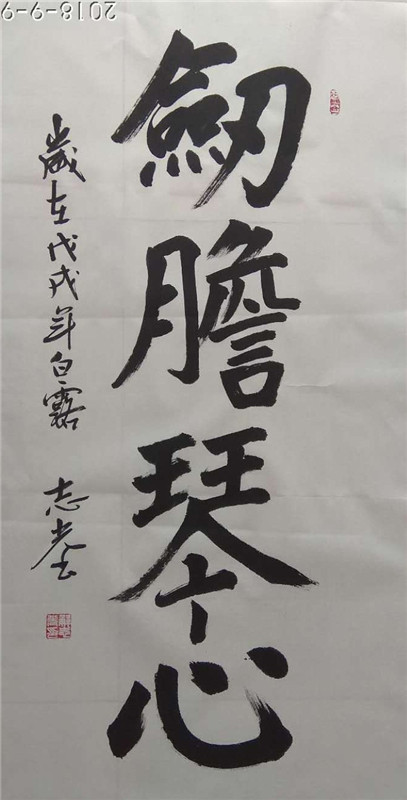 劒膽琴心
歲在戊戌年白露
志堂書
2018-9-9